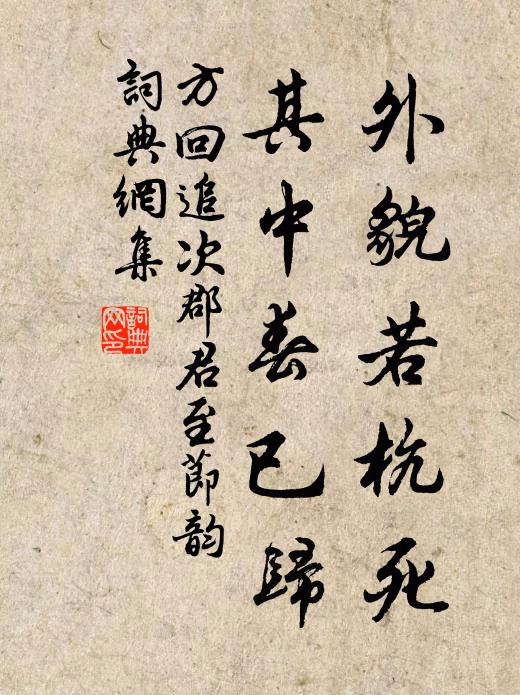 外貌若枕死
其中春已歸
方回追次郡君至節韵
詞典網集
詞典网印